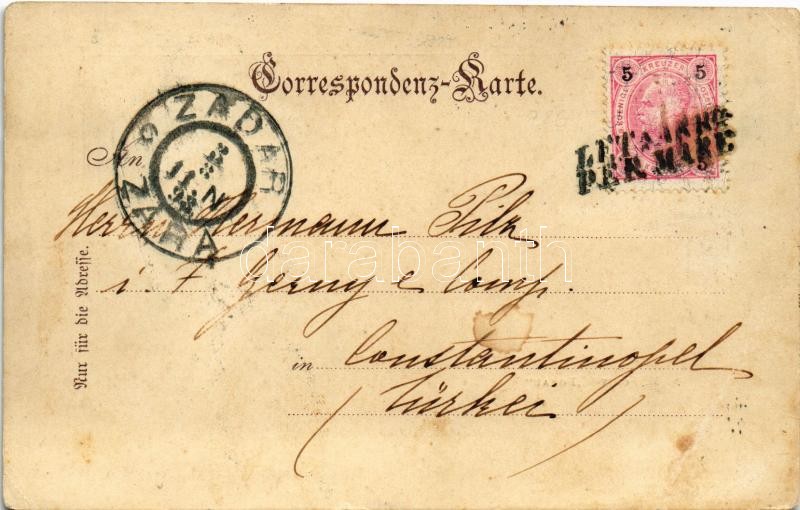 Correspondenz-Karte.
5 KREUZER 5
LETT. ARR.
PER MARE
5
ZADAR
ZARA
An
Herrn Hermann Pilz
i. F. Gerny e Comp.
in Constantinopel
(Türkei
Nur für die Adresse.
darabanth